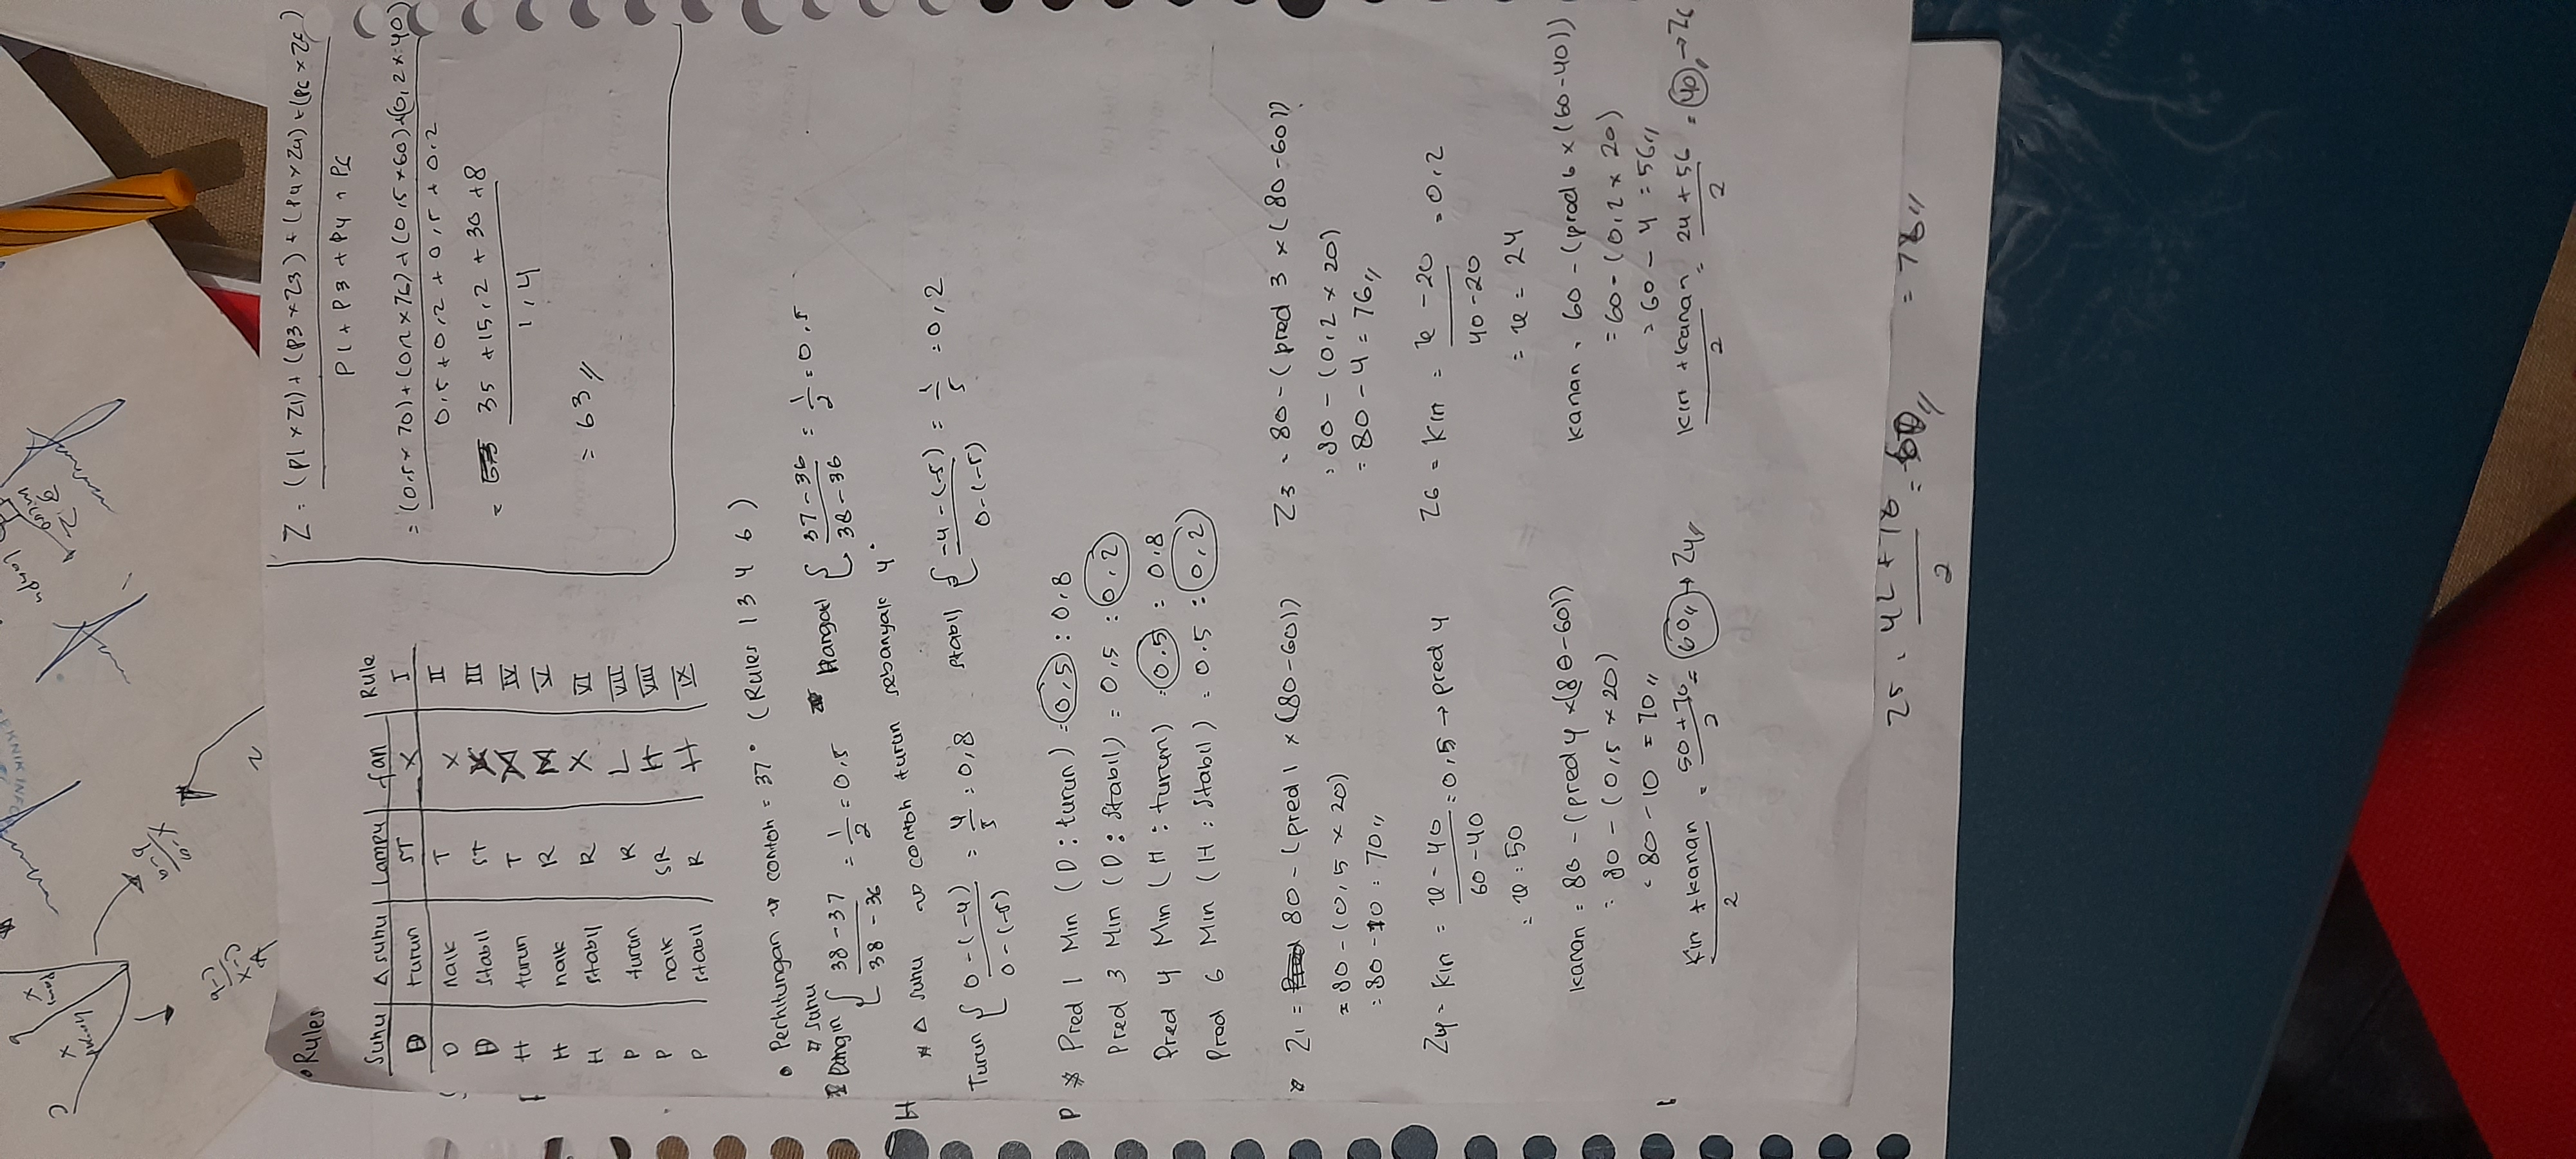 • Rules
Suhu | Δ suhu | Lampu | fan | Rule
D | turun | ST | X | I
D | naik | T | X | II
D | stabil | ST | X | III
H | turun | T | X | IV
H | naik | R | M | V
H | stabil | R | X | VI
P | turun | R | L | VII
P | naik | SR | H | VIII
P | stabil | R | H | IX
Z = (P1 x Z1) + (P3 x Z3) + (P4 x Z4) + (P6 x Z6)
P1 + P3 + P4 + P6
= (0,5 x 70) + (0,2 x 76) + (0,5 x 60) + (0,2 x 40)
0,5 + 0,2 + 0,5 + 0,2
= 35 + 15,2 + 30 + 8
1,4
= 63 //
• Perhitungan → contoh = 37° (Rules 1 3 4 6)
* suhu
Dingin { 38 - 37 / 38 - 36 = 1/2 = 0,5 Hangat { 37 - 36 / 38 - 36 = 1/2 = 0,5
* Δ suhu → contoh turun sebanyak 4°
Turun { 0 - (-4) / 0 - (-5) = 4/5 = 0,8 stabil { -4 - (-5) / 0 - (-5) = 1/5 = 0,2
* Pred 1 Min (D : turun) = 0,5 : 0,8
Pred 3 Min (D : Stabil) = 0,5 : 0,2
Pred 4 Min (H : turun) = 0.5 : 0.8
Pred 6 Min (H : Stabil) = 0.5 : 0,2
* Z1 = 80 - (pred 1 x (80-60))
= 80 - (0,5 x 20)
= 80 - 10 = 70 //
Z3 = 80 - (pred 3 x (80-60))
= 80 - (0,2 x 20)
= 80 - 4 = 76 //
Z4 = Kiri = x - 40 / 60 - 40 = 0,5 → pred 4
= x = 50
kanan = 80 - (pred 4 x (80-60))
= 80 - (0,5 x 20)
= 80 - 10 = 70 //
Kiri + kanan / 2 = 50 + 70 / 2 = 60 // → Z4 //
Z6 = Kiri = x - 20 / 40 - 20 = 0,2
= x = 24
kanan = 60 - (pred 6 x (60-40))
= 60 - (0,2 x 20)
= 60 - 4 = 56 //
kiri + kanan / 2 = 24 + 56 / 2 = 40 // → Z6
H
P
Z5 = 42 + 78 / 2 = 60 //
= 78 //